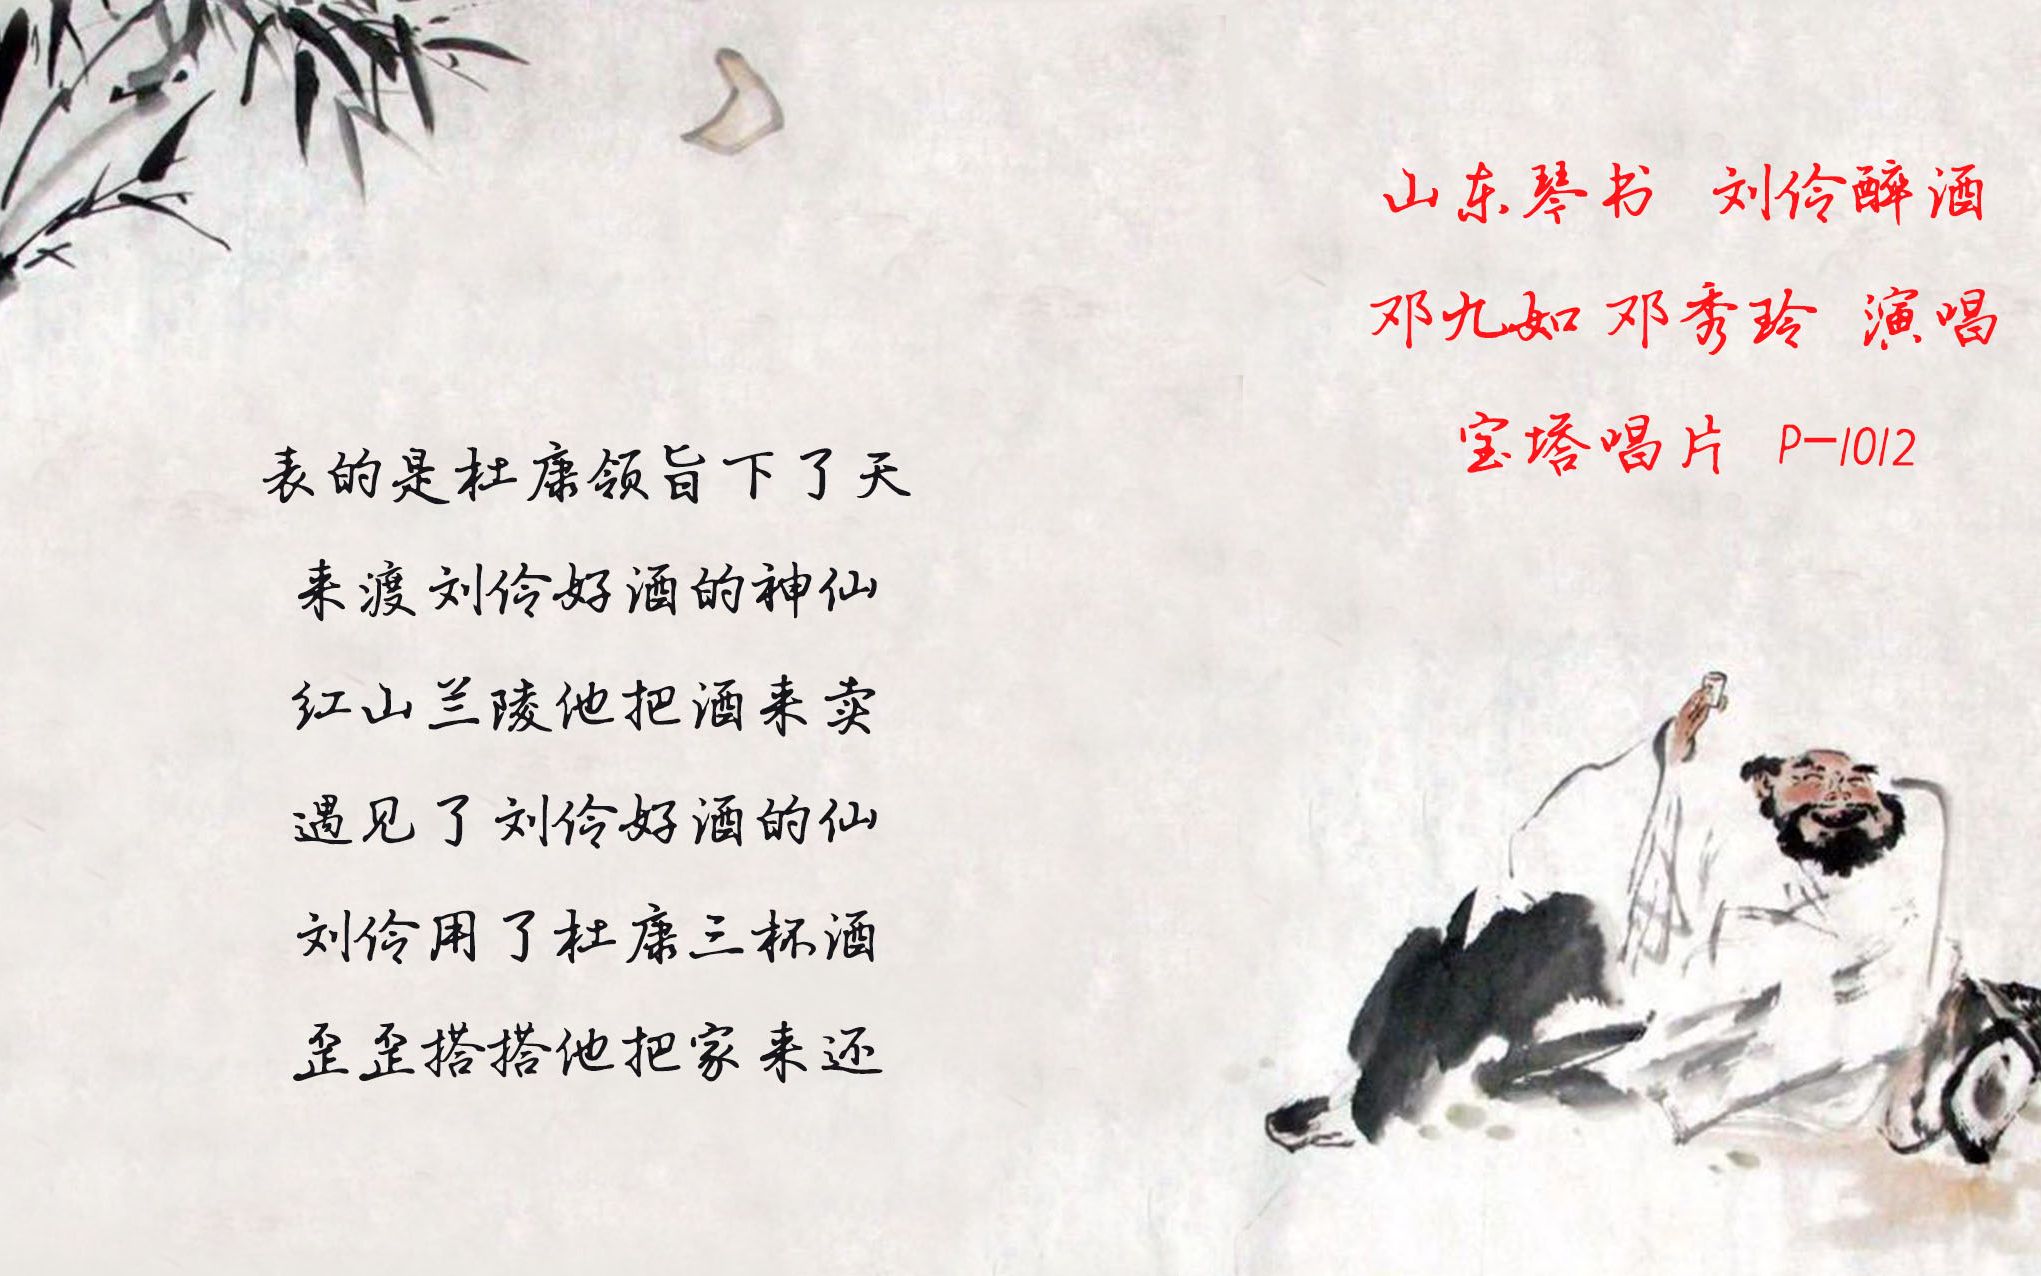 山东琴书 刘伶醉酒
邓九如 邓秀玲 演唱
宝塔唱片 P-1012
表的是杜康领旨下了天
来渡刘伶好酒的神仙
红山兰陵他把酒来卖
遇见了刘伶好酒的仙
刘伶用了杜康三杯酒
歪歪搭搭他把家来还